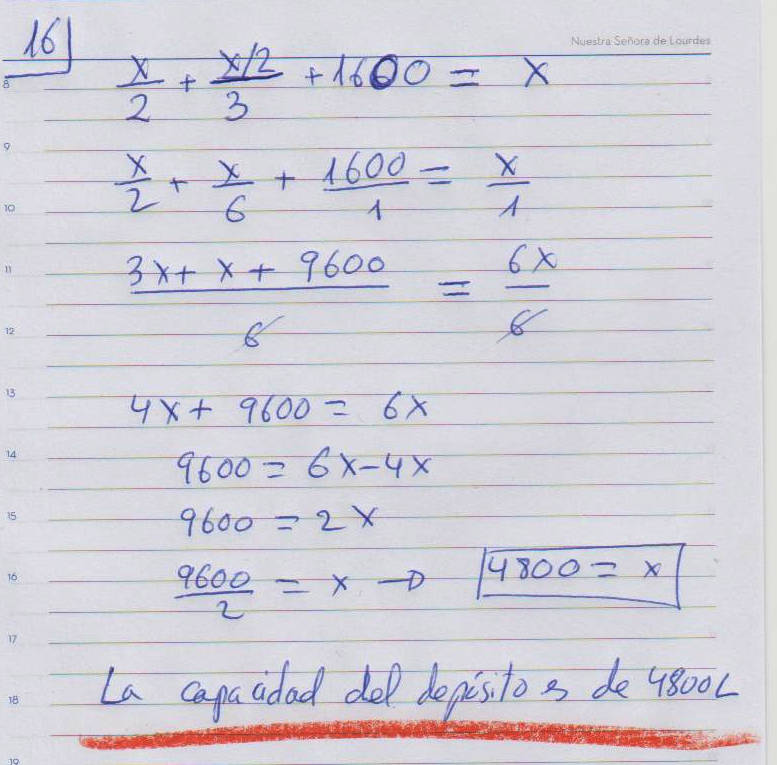 16
Nuestra Señora de Lourdes
x/2 + (x/2)/3 + 1600 = x
x/2 + x/6 + 1600/1 = x/1
(3x + x + 9600)/6 = 6x/6
4x + 9600 = 6x
9600 = 6x - 4x
9600 = 2x
9600/2 = x → 4800 = x
La capacidad del depósito es de 4800L
8
9
10
11
12
13
14
15
16
17
18
19